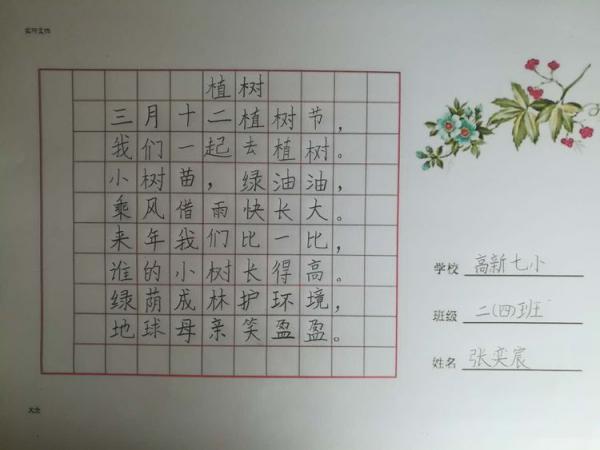 植树
三月十二植树节，
我们一起去植树。
小树苗，绿油油，
乘风借雨快长大。
来年我们比一比，
谁的小树长得高。
绿荫成林护环境，
地球母亲笑盈盈。
学校 高新七小
班级 二(四)班
姓名 张奕宸